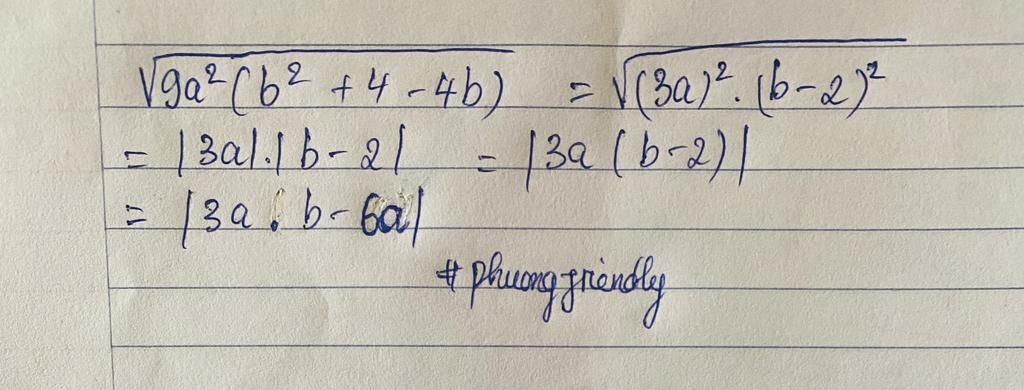 √9a²(b² + 4 - 4b) = √(3a)².(b-2)²
= |3a|.|b-2| = |3a(b-2)|
= |3a.b-6a|
# phuong friendly